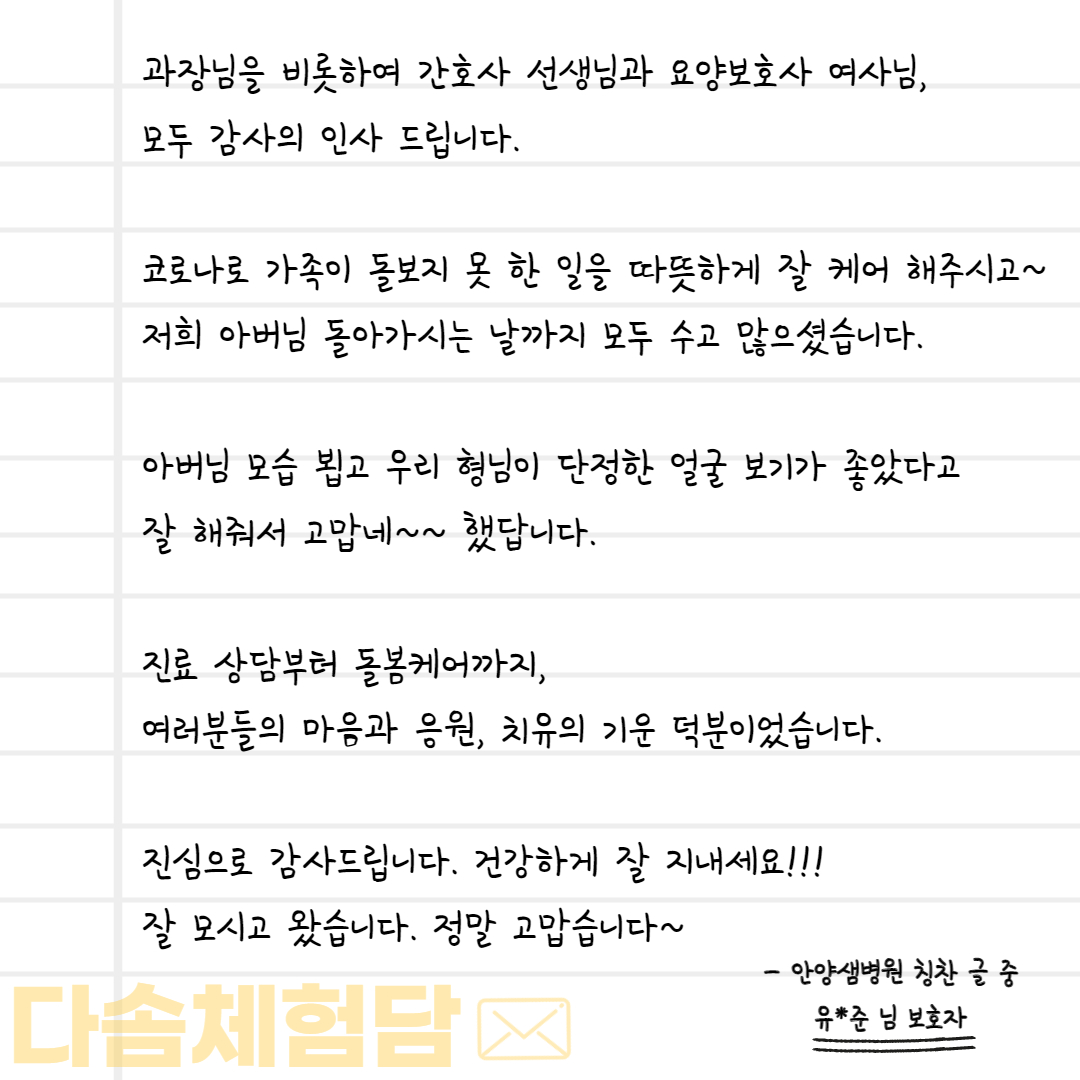 과장님을 비롯하여 간호사 선생님과 요양보호사 여사님,
모두 감사의 인사 드립니다.
코로나로 가족이 돌보지 못 한 일을 따뜻하게 잘 케어 해주시고~
저희 아버님 돌아가시는 날까지 모두 수고 많으셨습니다.
아버님 모습 뵙고 우리 형님이 단정한 얼굴 보기가 좋았다고
잘 해줘서 고맙네~~ 했답니다.
진료 상담부터 돌봄케어까지,
여러분들의 마음과 응원, 치유의 기운 덕분이었습니다.
진심으로 감사드립니다. 건강하게 잘 지내세요!!!
잘 모시고 왔습니다. 정말 고맙습니다~
- 안양샘병원 칭찬 글 중
유*준 님 보호자
다솜체험담